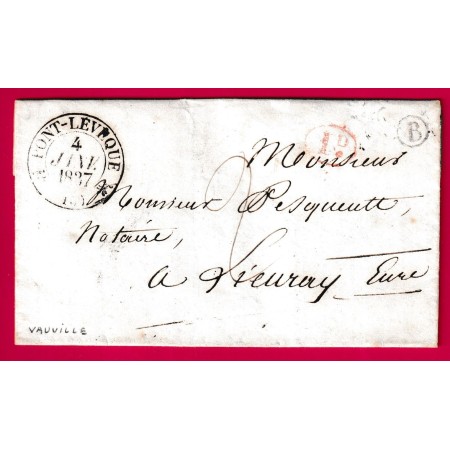 PONT-LÉVÊQUE
4
JANV.
1837
1 D
B
Monsieur
Monsieur Pesqueult,
Notaire,
a Lieuray Eure
VAUVILLE